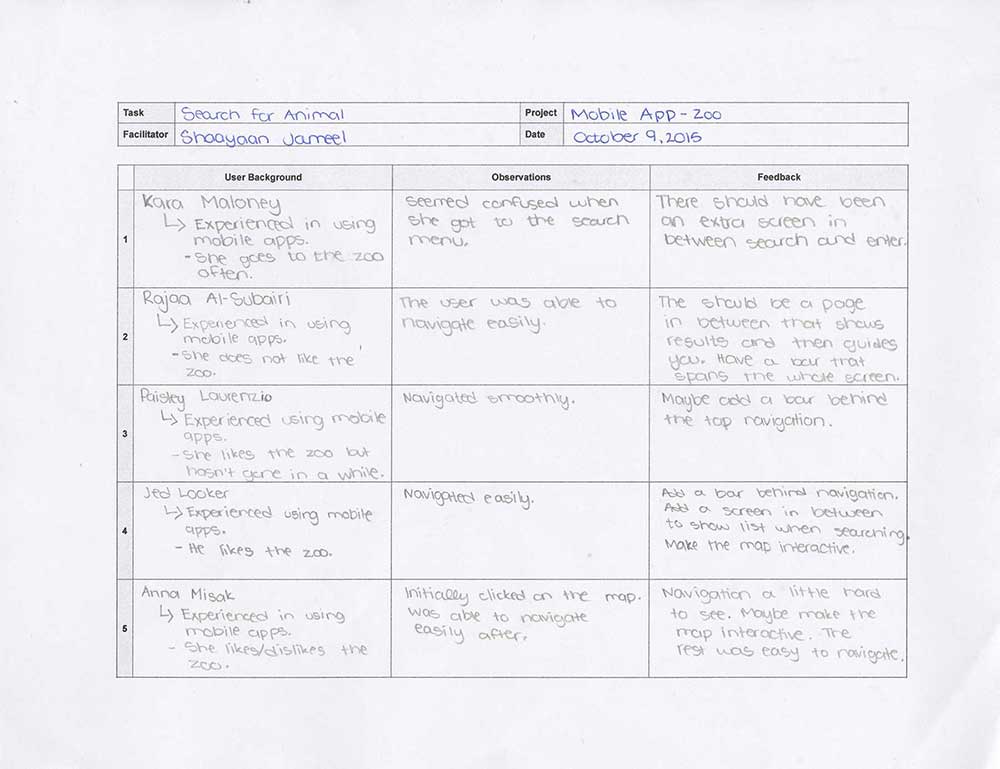 Task Search for Animal Project Mobile App - Zoo
Facilitator Shaayaan Jameel Date October 9, 2015
User Background Observations Feedback
1
Kara Maloney
↳ Experienced in using
mobile apps.
- She goes to the zoo
often.
Seemed confused when
she got to the search
menu.
There should have been
an extra screen in
between search and enter.
2
Rajaa Al-Subairi
↳ Experienced in using
mobile apps.
- She does not like the
zoo.
The user was able to
navigate easily.
The should be a page
in between that shows
results and then guides
you. Have a bar that
spans the whole screen.
3
Paisley Laurenzio
↳ Experienced using mobile
apps.
- She likes the zoo but
hasn't gone in a while.
Navigated smoothly.
Maybe add a bar behind
the top navigation.
4
Jed Looker
↳ Experienced using mobile
apps.
- He likes the zoo.
Navigated easily.
Add a bar behind navigation.
Add a screen in between
to show list when searching.
Make the map interactive.
5
Anna Misak
↳ Experienced in using
mobile apps.
- She likes/dislikes the
zoo.
Initially clicked on the map.
was able to navigate
easily after.
Navigation a little hard
to see. Maybe make the
map interactive. The
rest was easy to navigate.